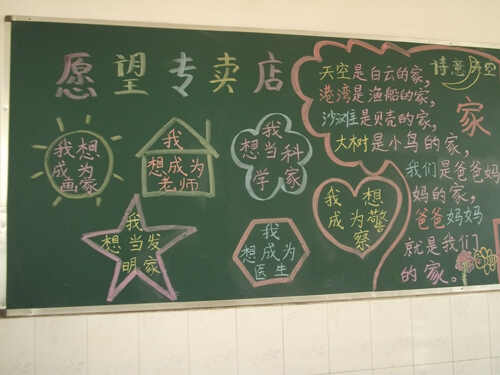 愿望专卖店
我想
成为
画家
我
想成为
老师
我
想当科
学家
我
想当发
明家
我
想成为
医生
我想
成为警
察
诗意
空
家
天空是白云的家,
港湾是渔船的家,
沙滩是贝壳的家,
大树是小鸟的家,
我们是爸爸妈
妈的家,
爸爸妈妈
就是我们
的家。